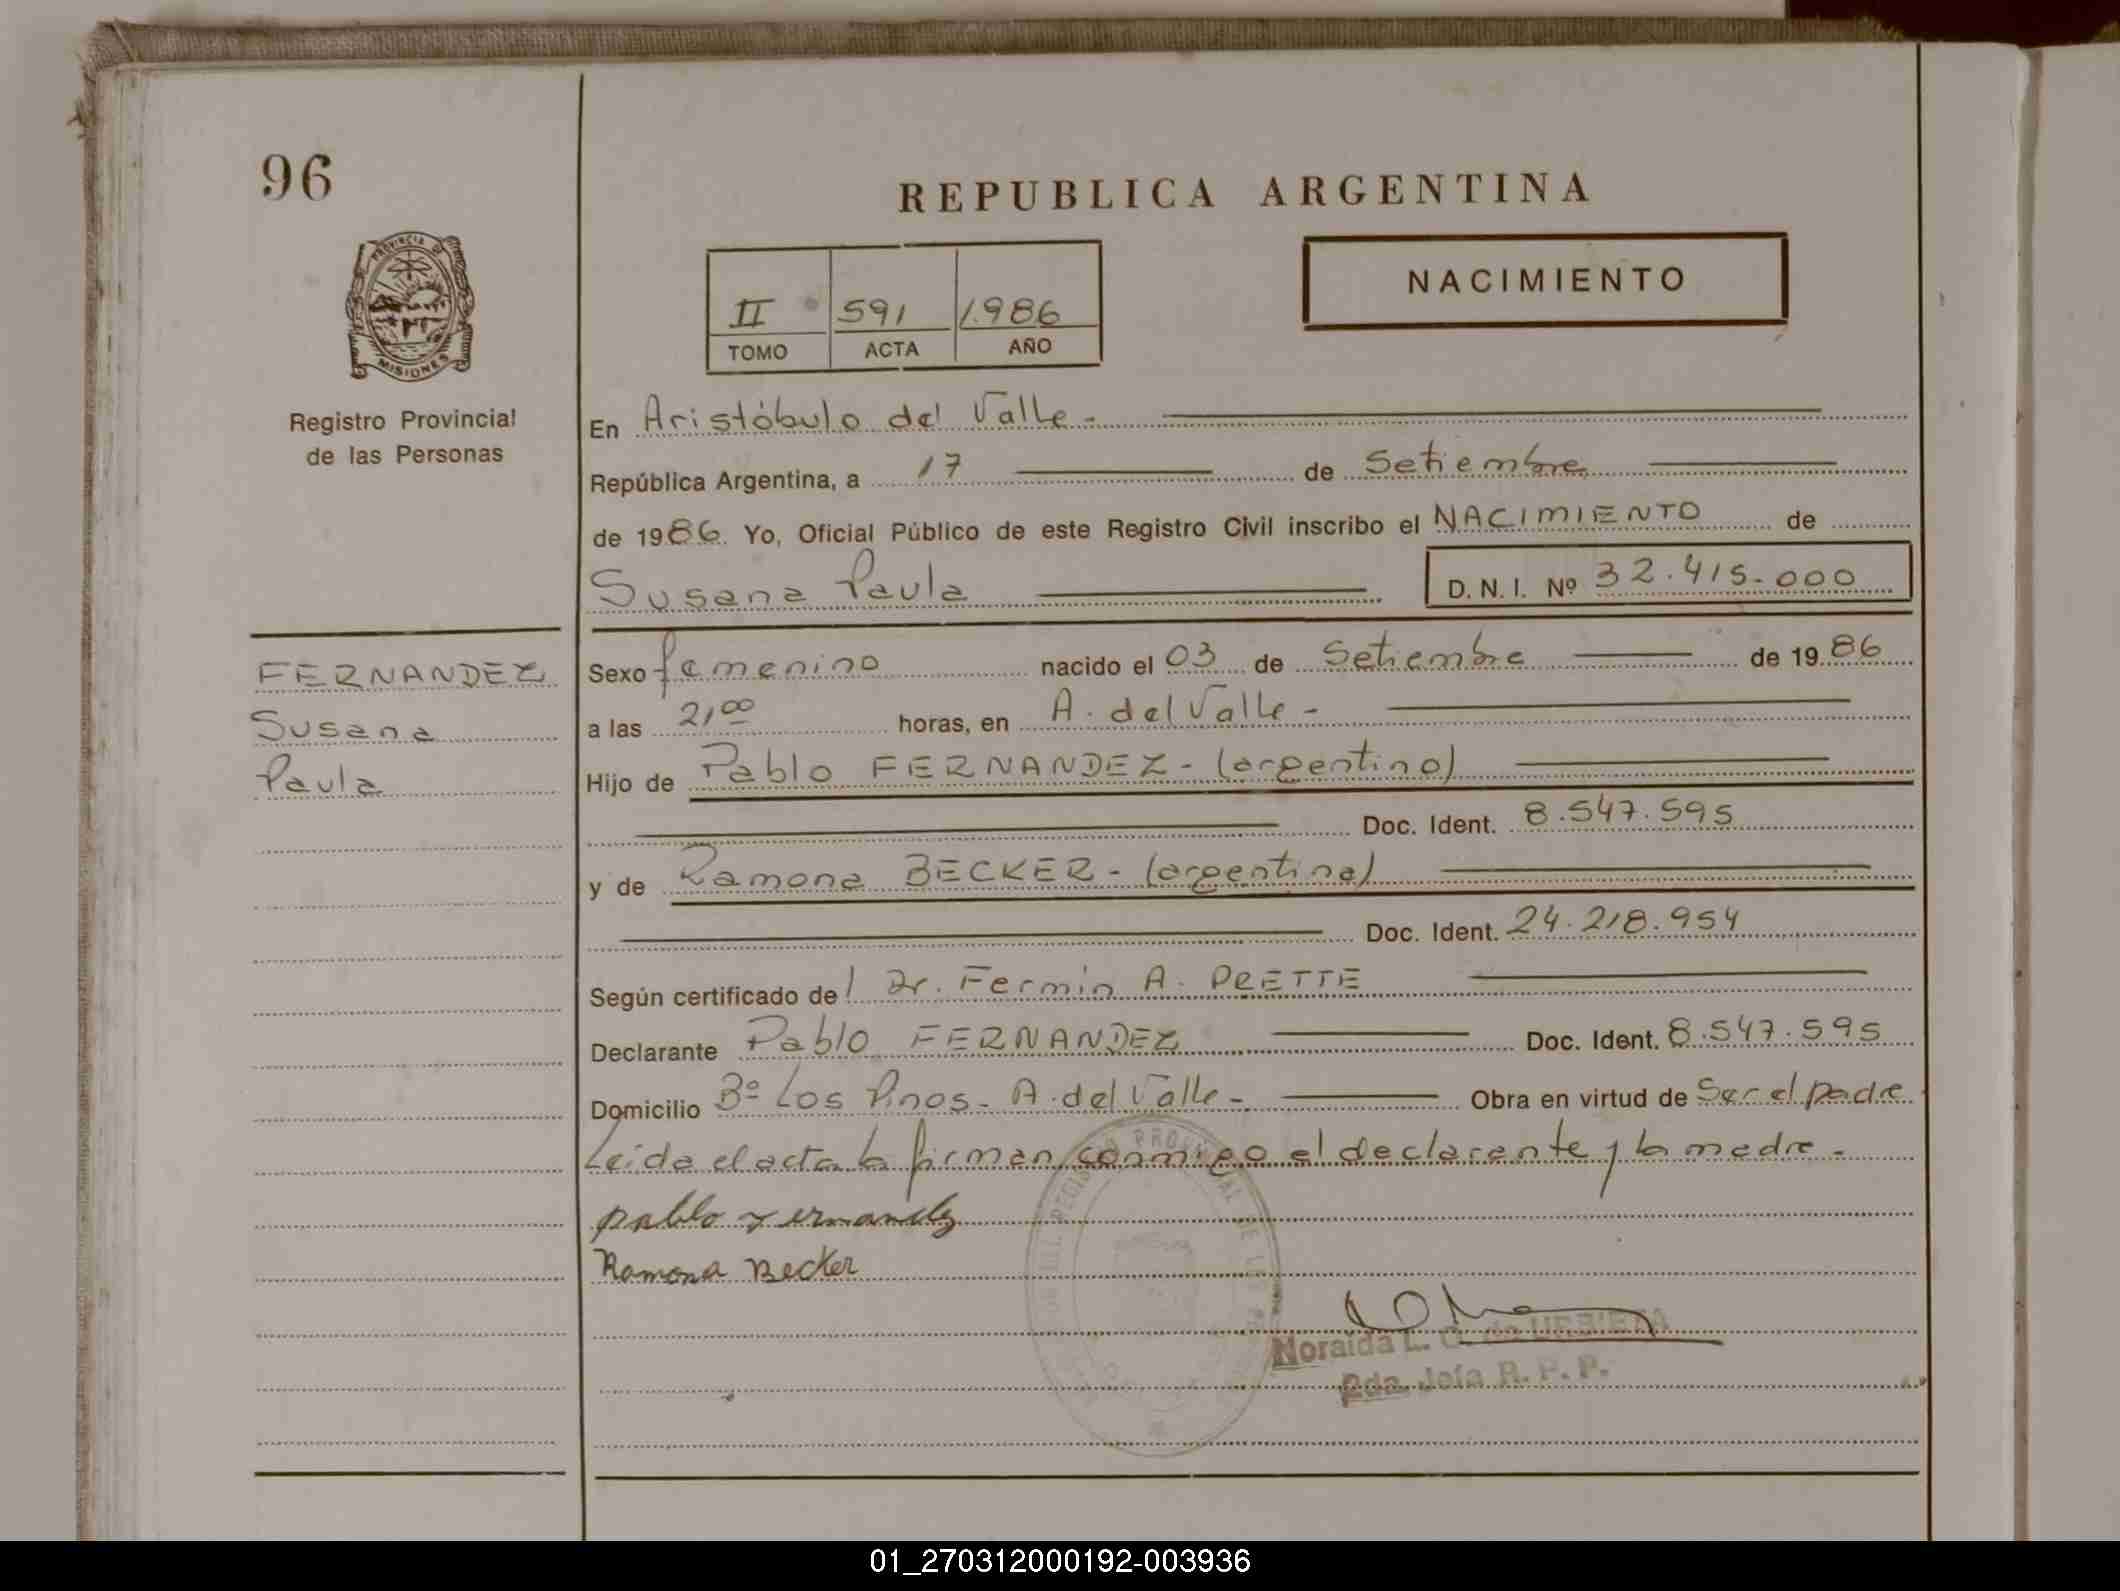 96
REPUBLICA ARGENTINA
PROVINCIA DE
MISIONES
Registro Provincial
de las Personas
II 591 1.986
TOMO ACTA AÑO
NACIMIENTO
En Aristóbulo del Valle.-
República Argentina, a 17 de Setiembre
de 1986. Yo, Oficial Público de este Registro Civil inscribo el NACIMIENTO de
Susana Paula D.N.I. Nº 32.415.000
FERNANDEZ
Susana
Paula
Sexo femenino nacido el 03 de Setiembre de 1986
a las 21,00 horas, en A. del Valle -
Hijo de Pablo FERNANDEZ - (argentino)
Doc. Ident. 8.547.595
y de Ramona BECKER - (argentina)
Doc. Ident. 24.218.954
Según certificado del Dr. Fermín A. PRETTE
Declarante Pablo FERNANDEZ Doc. Ident. 8.547.595
Domicilio Bº Los Pinos - A. del Valle - Obra en virtud de Ser el padre
Leída el acta la firman conmigo el declarante y la madre.-
pablo Fernandez
Ramona Becker
Noraida L. de URBIETA
2da. Jefa R. P. P.
01_270312000192-003936